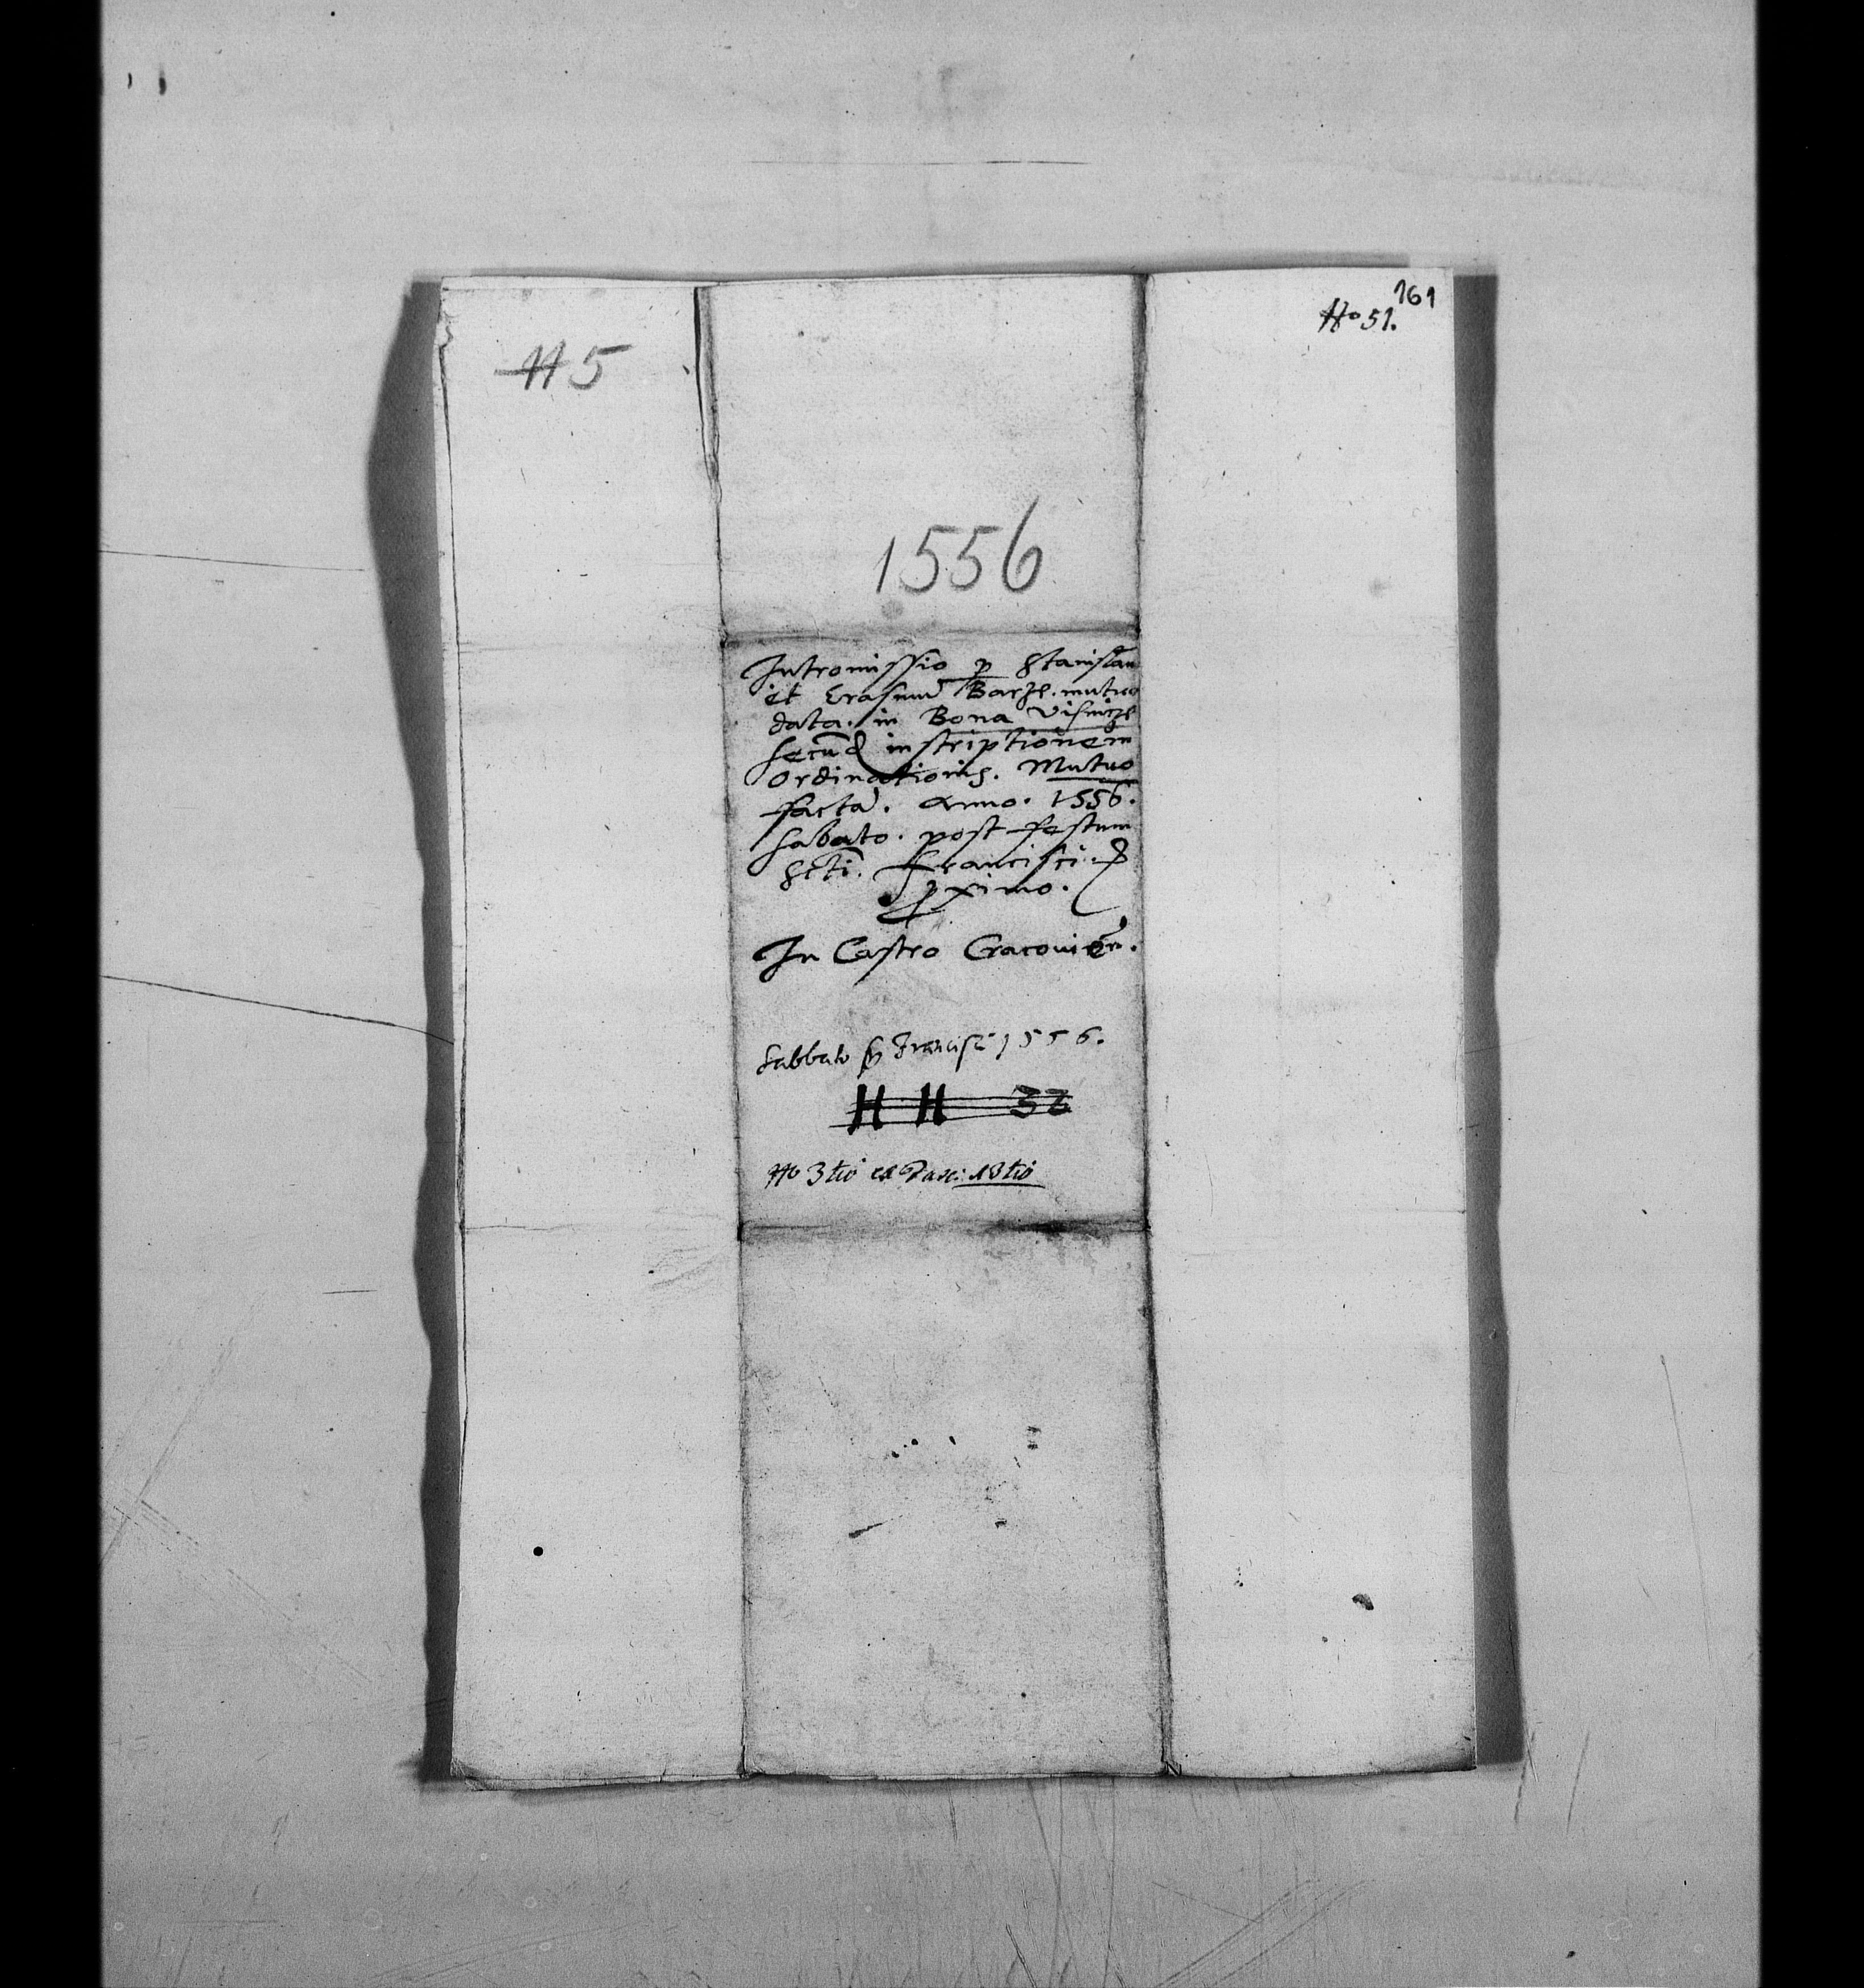 161
No 51.
No 5
1556
Intromissio p Stanislau
et Erasmu Barzi. mutuo
data. in Bona Visnicze
secud inscriptionem
Ordinationis. Mutuo
facta. Anno. 1556.
Sabato. post festum
Scti. Francisci.
pximo.
In Castro Cracovien.
Sabbato p Francisci 1556.
H H 36
No 3tio ex Fasc: 18tio